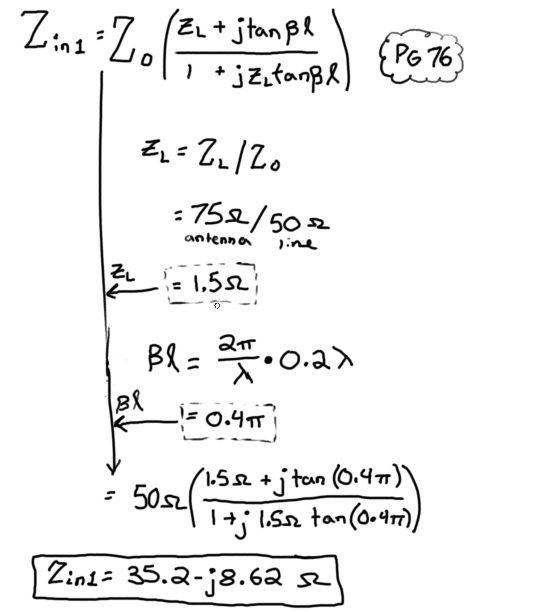 Zin1 = Z0 (zL + jtanβl / 1 + jzLtanβl)
PG 76
zL = ZL/Z0
= 75Ω/50Ω
antenna line
zL
= 1.5Ω
βl = 2π/λ • 0.2λ
βl
= 0.4π
= 50Ω (1.5Ω + j tan (0.4π) / 1+j 1.5Ω tan(0.4π))
Zin1 = 35.2-j8.62 Ω